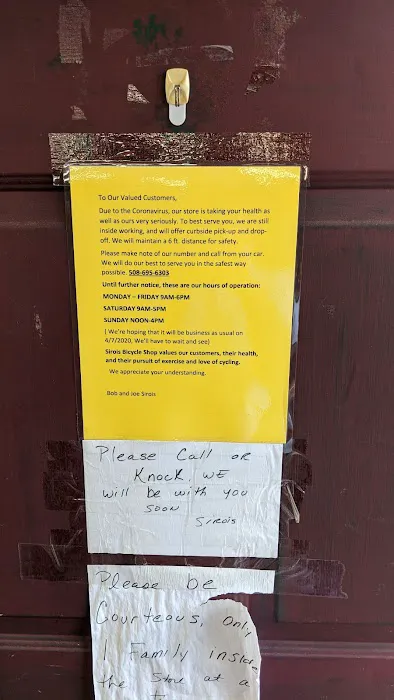 To Our Valued Customers,
Due to the Coronavirus, our store is taking your health as
well as ours very seriously. To best serve you, we are still
inside working, and will offer curbside pick-up and drop-
off. We will maintain a 6 ft. distance for safety.
Please make note of our number and call from your car.
We will do our best to serve you in the safest way
possible. 508-695-6303
Until further notice, these are our hours of operation:
MONDAY – FRIDAY 9AM-6PM
SATURDAY 9AM-5PM
SUNDAY NOON-4PM
( We're hoping that it will be business as usual on
4/7/2020, We'll have to wait and see)
Sirois Bicycle Shop values our customers, their health,
and their pursuit of exercise and love of cycling.
We appreciate your understanding.
Bob and Joe Sirois
Please Call or
Knock, WE
will be with you
soon
Sirois
Please be
Courteous, Only
1 Family inside
the Store at a